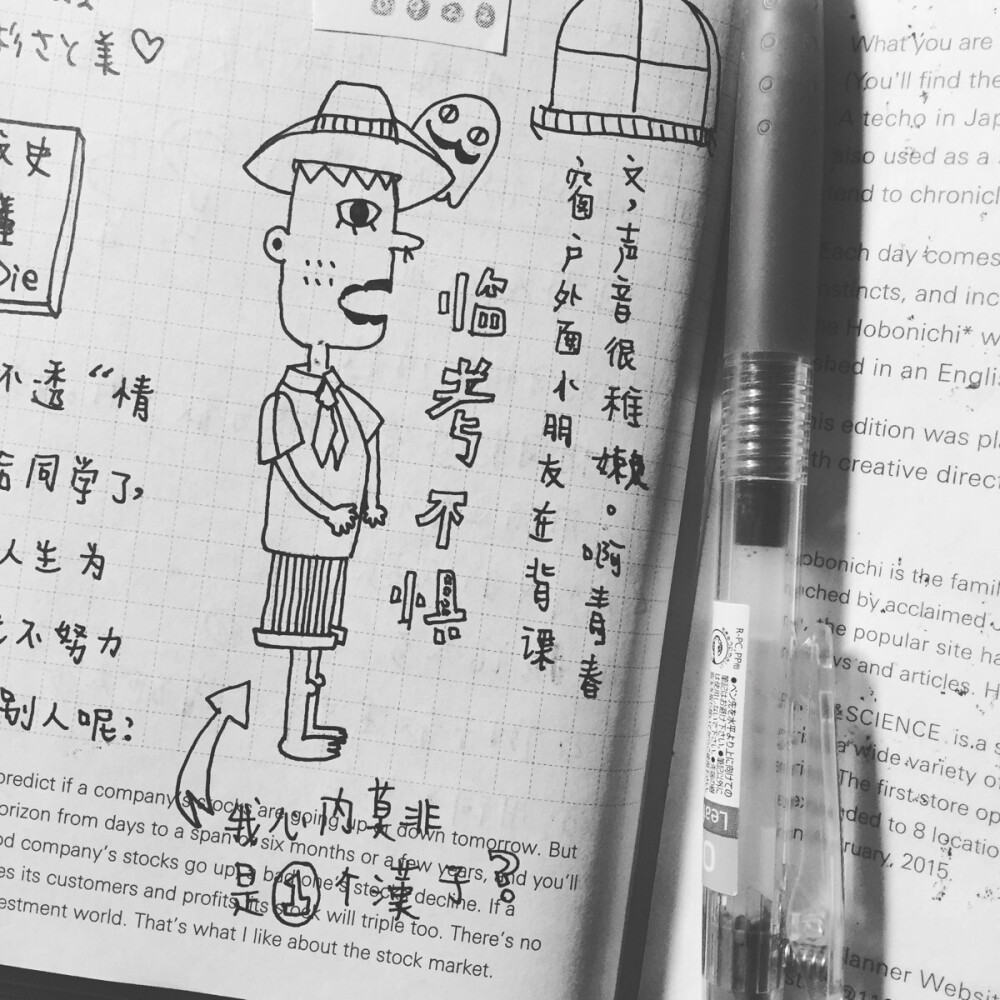 さと美♡
史
Die
不透“情
同学了,
人生为
不努力
别人呢:
临考不
窗户外面小朋友在背课
文,声音很稚嫩。啊青春
我儿内莫非
是①个漢子?
predict if a company's stocks are going up or down tomorrow. But
horizon from days to a span of six months or a few years, and you'll
good company's stocks go up, a bad one's stocks decline. If a
its customers and profits, its stock will triple too. There's no
investment world. That's what I like about the stock market.
What you are
(You'll find the
A techo in Jap
also used as a
to chronicl
Each day comes
instincts, and inc
Hobonichi* w
in an Englis
this edition was pla
with creative direct
Hobonichi is the famil
by acclaimed
the popular site ha
and articles. H
&SCIENCE is a s
a wide variety of
The first store op
to 8 locatio
2015.
Planner Websit
R-PC,PP他
●ペン先を水平より上に向けての
筆記はお避け下さい。●筆記以外に
は使用しないで下さい。